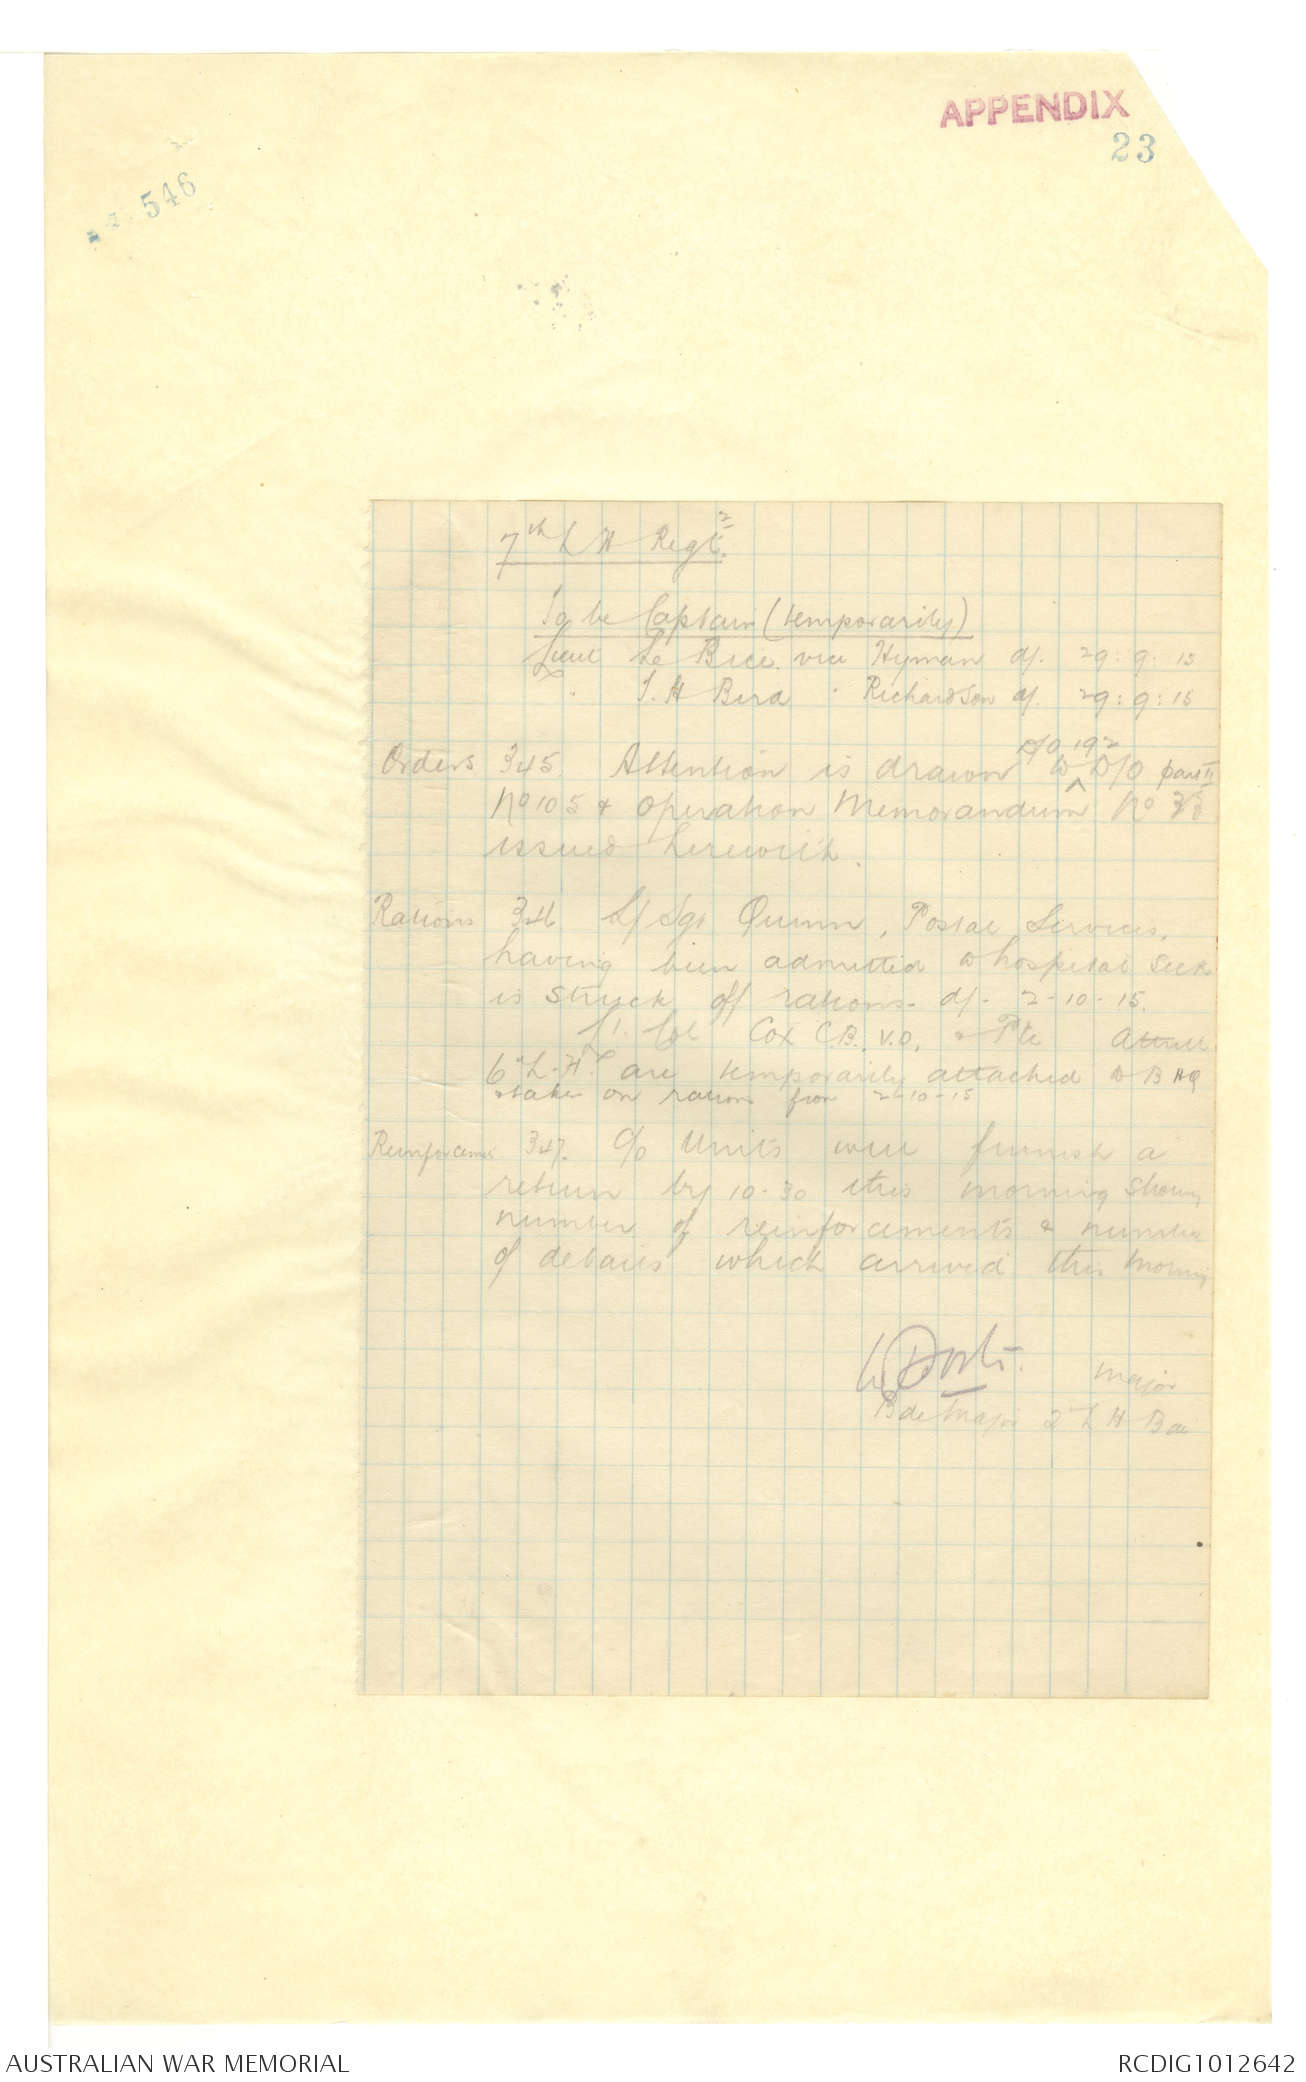 APPENDIX
23
546
2
7th L H Regt.
To be Captain (temporarily)
Lieut Le Bice. vice Hyman d/. 29:9:15
" T. H Bird " Richardson d/. 29:9:15
D/O 192
Orders 345. Attention is drawn to D/O part II
No 105 & Operation Memorandum No
issued herewith.
Rations 346 S/Sgt Quinn, Postal Services,
having been admitted to hospital sick
is struck off rations - d/- 2-10-15.
Lt. Col Cox C.B., V.D, & Pte
6th L.H. are temporarily attached to B HQ
& taken on rations from 2-10-15
Reinforcements 347. C/O Units will furnish a
return by 10-30 this morning showing
number of reinforcements & number
of details which arrived this morning
Major
Bde Major 2nd L H Bde
AUSTRALIAN WAR MEMORIAL
RCDIG1012642